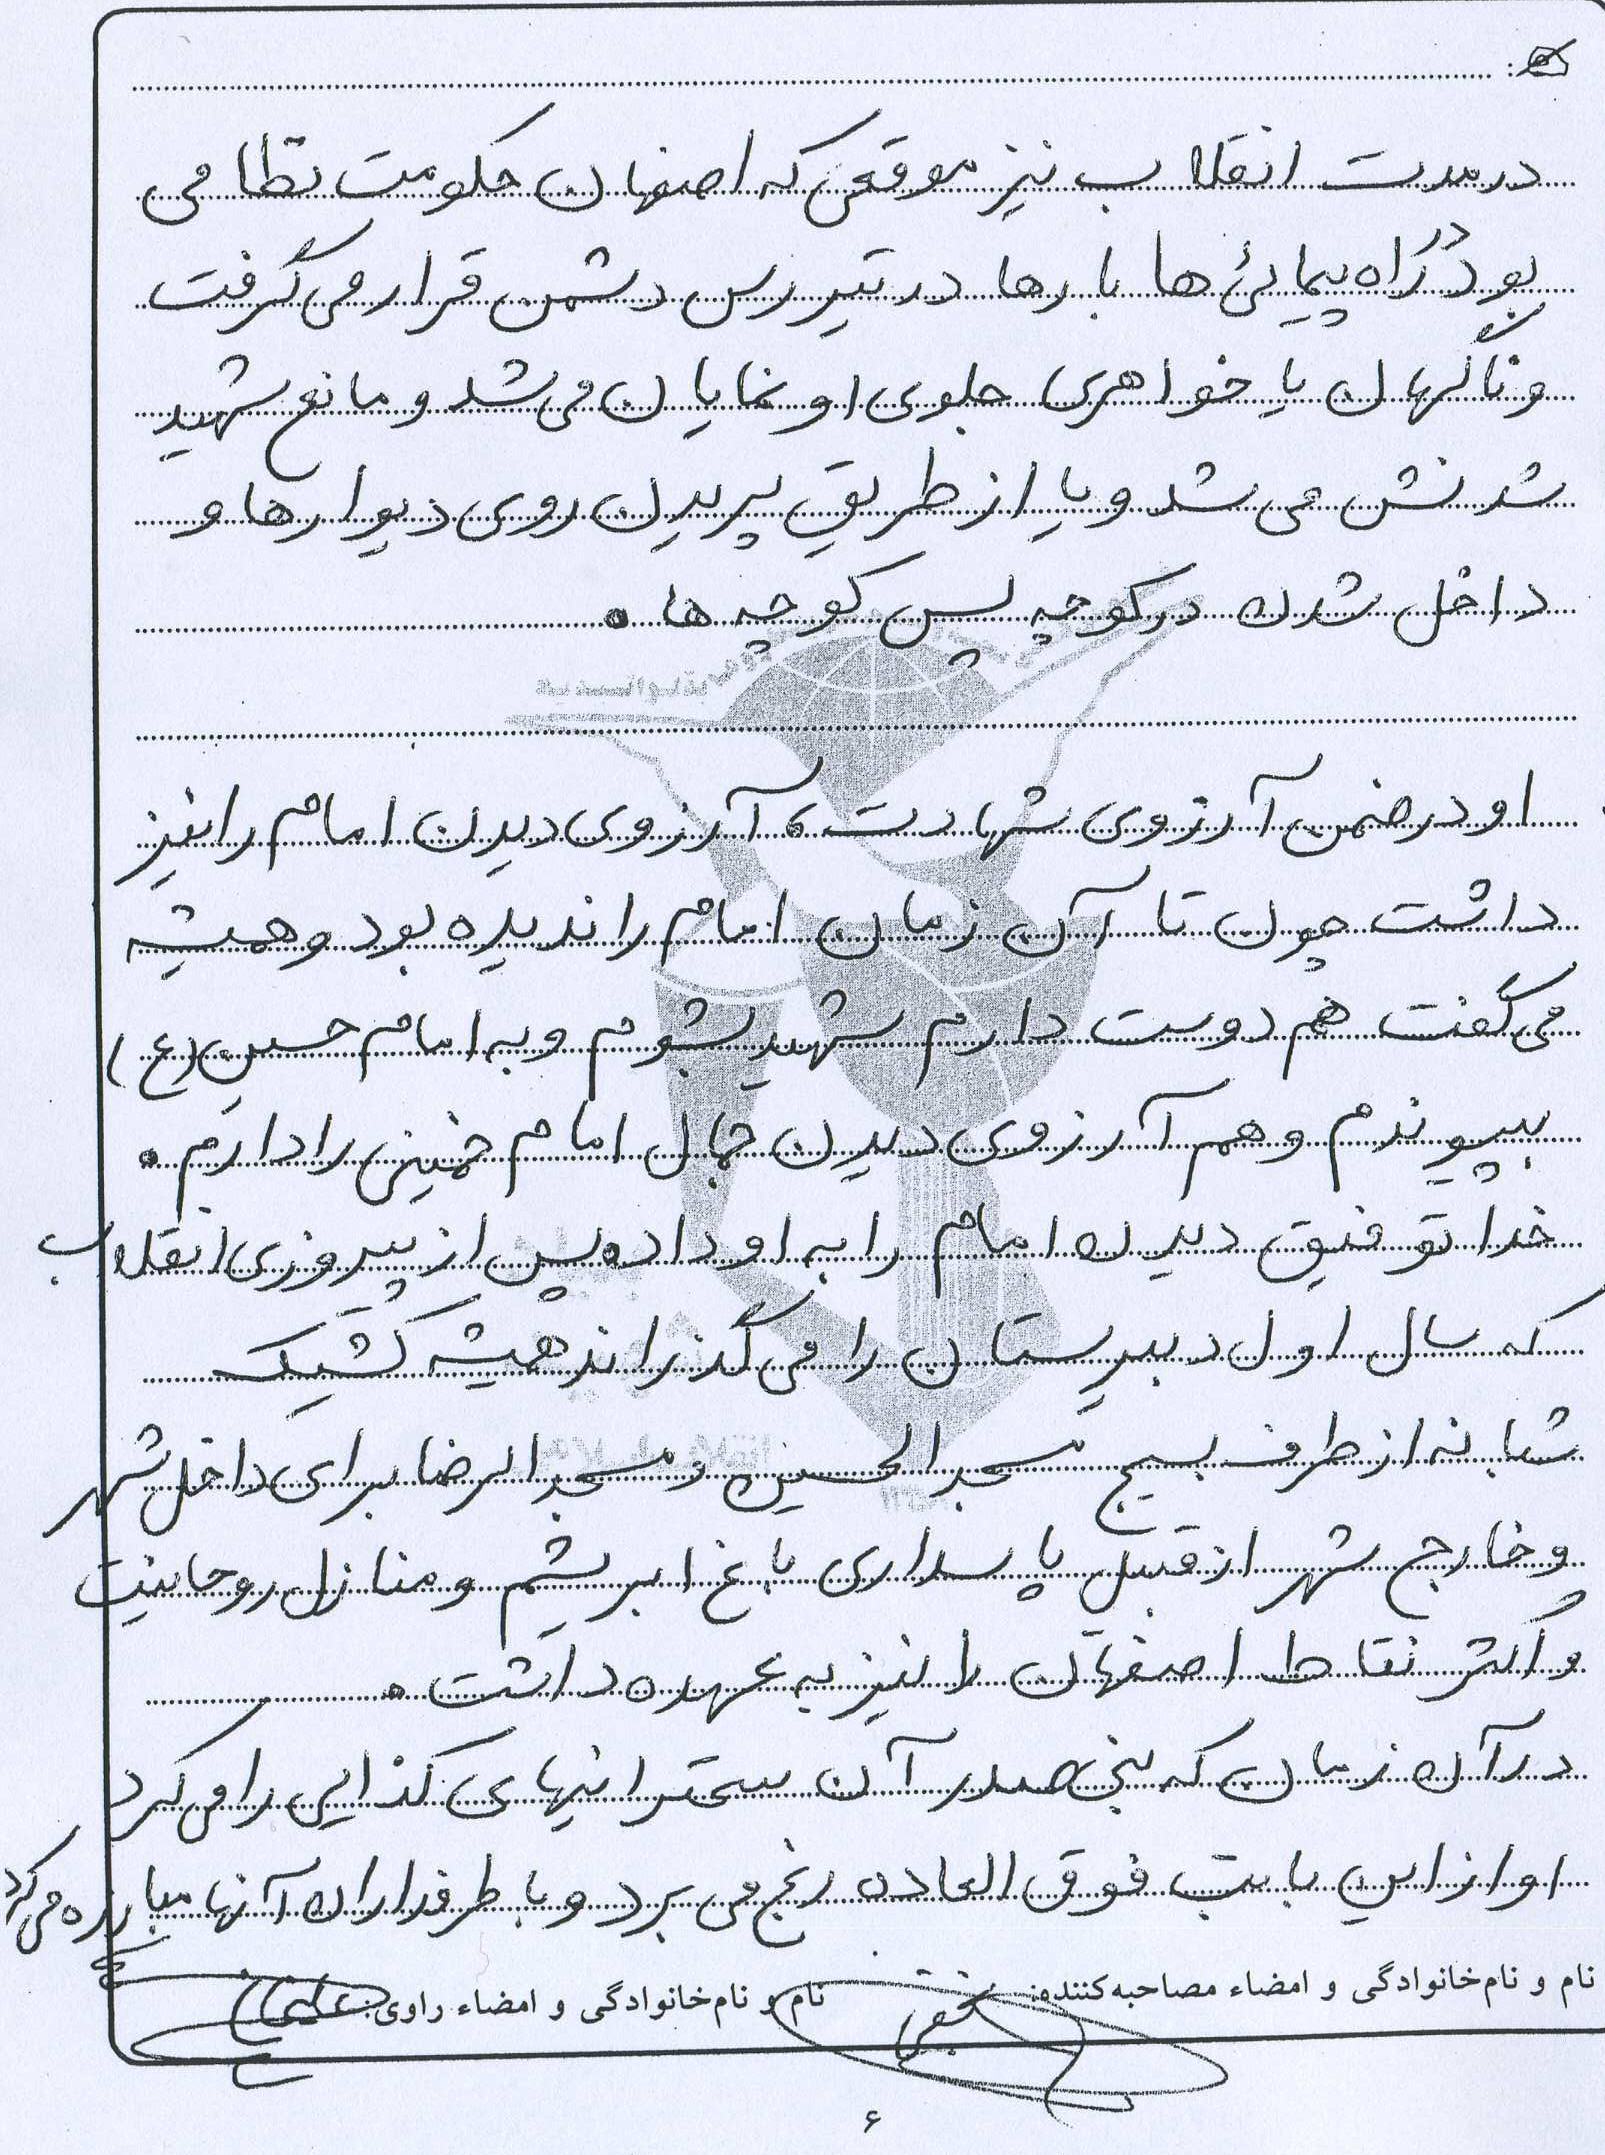 در مدت انقلاب نیز موقعی که اصفهان حکومت نظامی
بود در راه پیمائی ها بارها در تیر رس دشمن قرار می گرفت
و ناگهان با خواهری جلوی او نمایان می شد و مانع شهید
شدنش می شد و یا از طریق پریدن روی دیوارها و
داخل شدن در کوچه پس کوچه ها.
او در ضمن آرزوی شهادت، آرزوی دیدن امام را نیز
داشت چون تا آن زمان امام را ندیده بود و همیشه
می گفت هم دوست دارم شهید بشوم و به امام حسین (ع)
بپیوندم و هم آرزوی دیدن جمال امام خمینی را دارم.
خدا توفیق دیدن امام را به او داد. پس از پیروزی انقلاب
که سال اول دبیرستان را می گذراند همیشه کشیک
شبانه از طرف بسیج مسجد الحسین و مسجد الرضا برای داخل شهر
و خارج شهر از قبیل پاسداری باغ ابریشم و منازل روحانیت
و اکثر نقاط اصفهان را نیز به عهده داشت.
در آن زمان که بنی صدر آن سخنرانیهای کذایی را می کرد
او از این بابت فوق العاده رنج می برد و با طرفداران آنها مبارزه می کرد
نام و نام خانوادگی و امضاء مصاحبه کننده: نام و نام خانوادگی و امضاء راوی:
۶